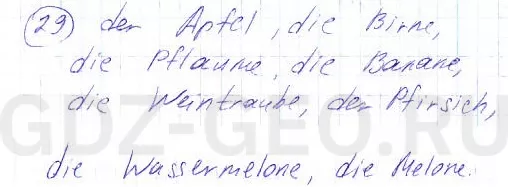 29 der Apfel, die Birne,
die Pflaume, die Banane,
die Weintraube, der Pfirsich,
GDZ-GEO.RU
die Wassermelone, die Melone.